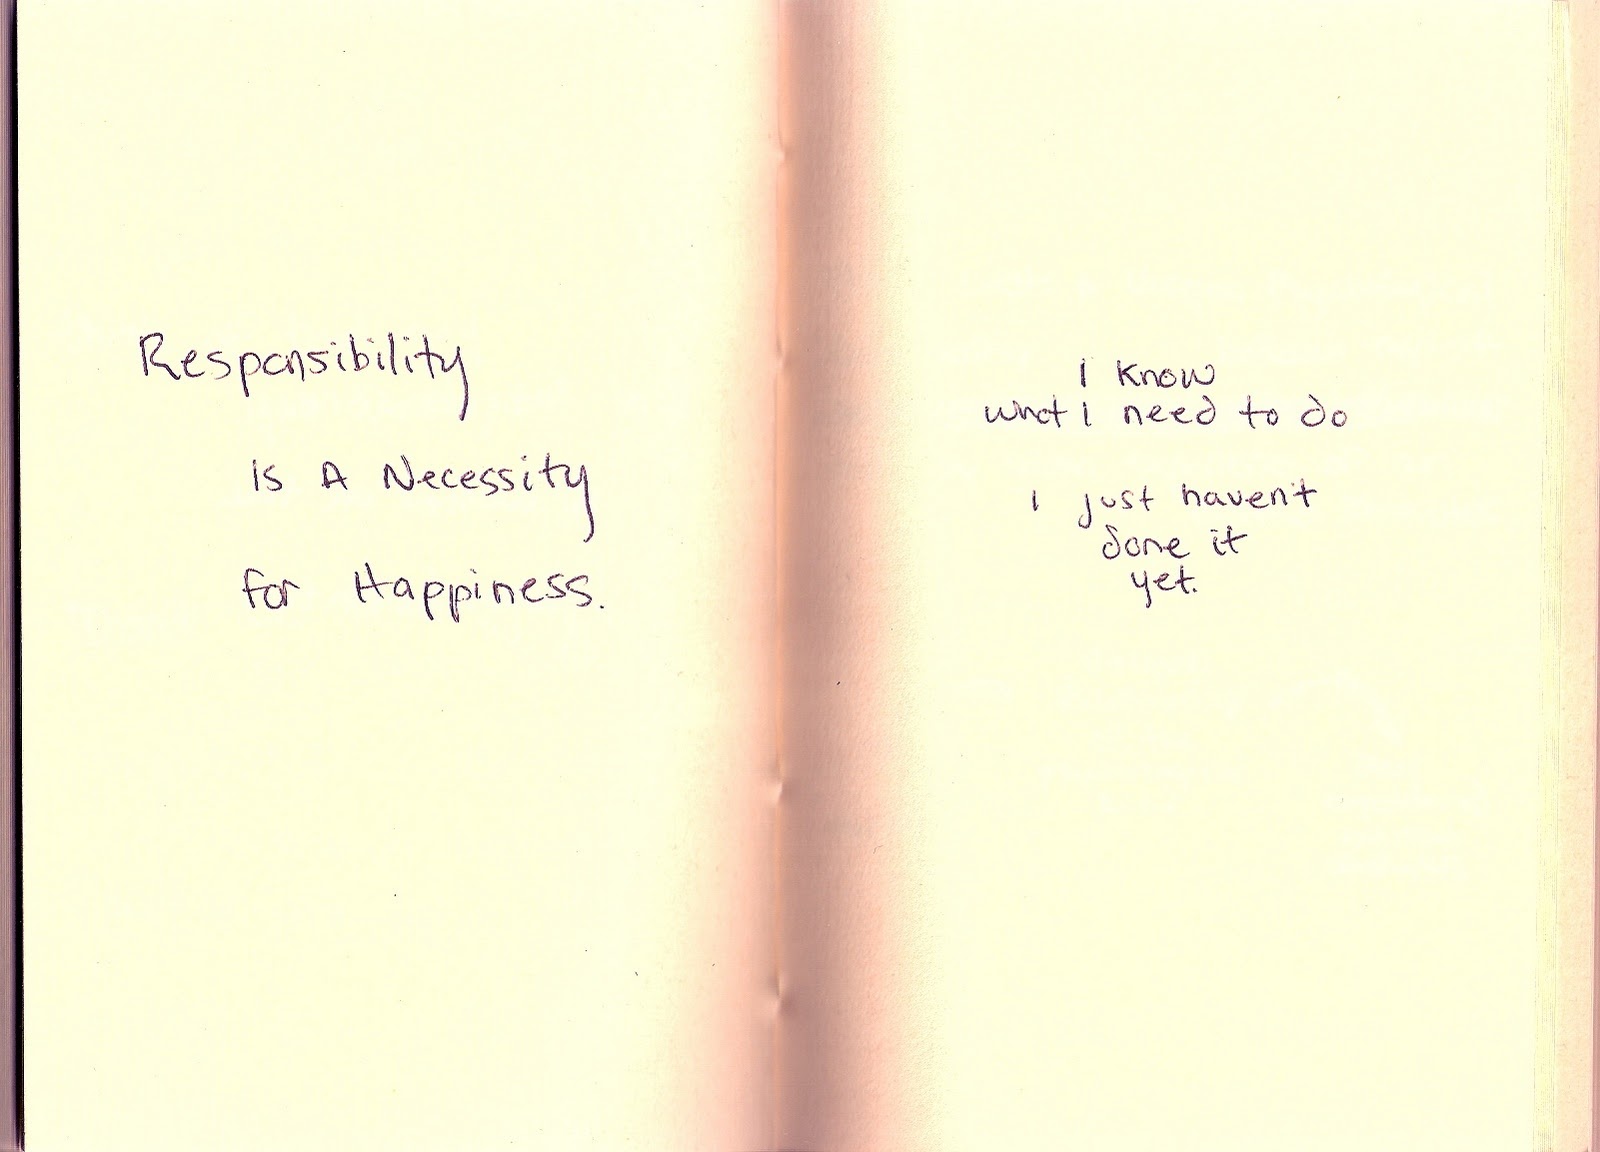 Responsibility
Is A Necessity
for Happiness.
I know
what I need to do
I just haven't
done it
yet.